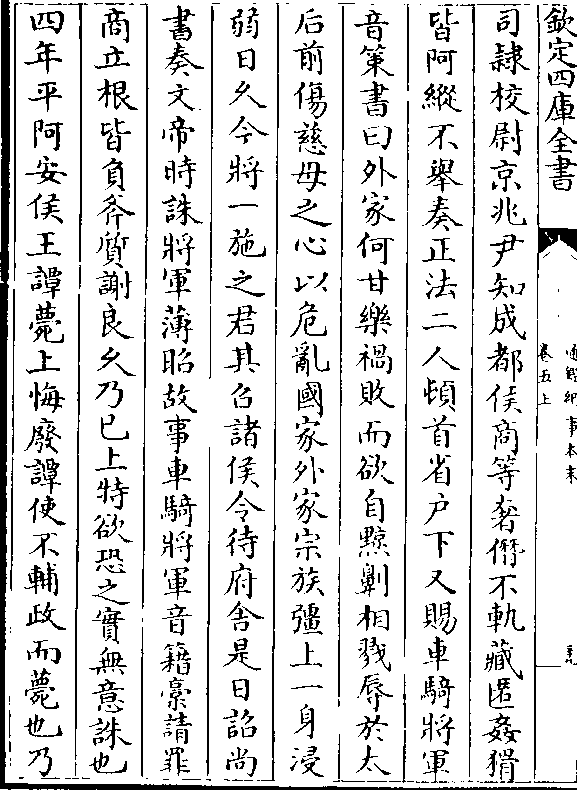 欽定四庫全書
通鑑紀事本末
卷五上
司隷校尉京兆尹知成都侯商等奢僭不軌藏匿姦猾
皆阿縱不舉奏正法二人頓首省户下又賜車騎將軍
音策書曰外家何甘樂禍敗而欲自黥劓相戮辱於太
后前傷慈母之心以危亂國家外家宗族彊上一身浸
弱日久今將一施之君其召諸侯令待府舍是日詔尚
書奏文帝時誅將軍薄昭故事車騎將軍音籍槀請罪
商立根皆負斧質謝良久乃已上特欲恐之實無意誅也
四年平阿安侯王譚薨上悔廢譚使不輔政而薨也乃